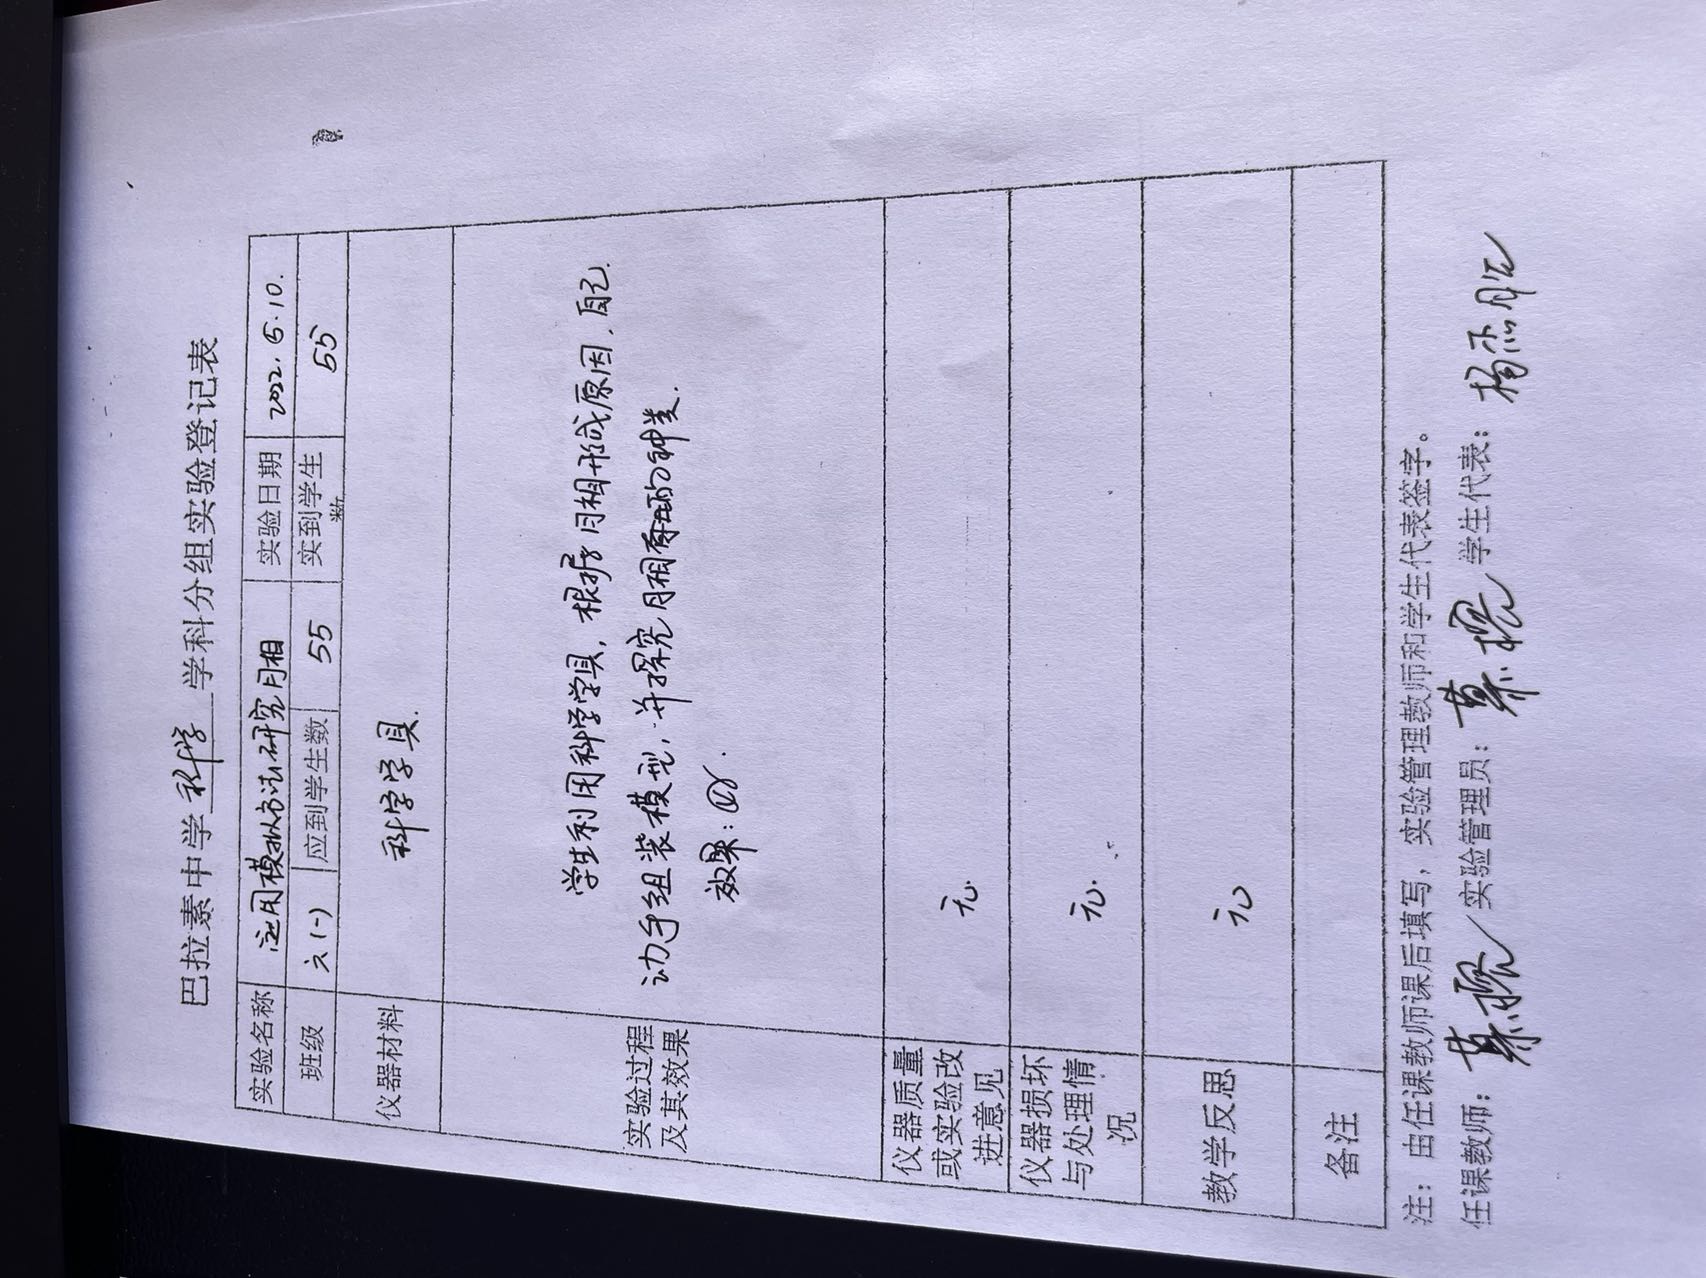 巴拉素中学 科学 学科分组实验登记表
实验名称 运用模拟方法研究月相 实验日期 2022.5.10.
班级 六(一) 应到学生数 55 实到学生数 55
仪器材料 科学学具.
实验过程及其效果
学生利用科学学具,根据月相形成原因,自己
动手组装模型,并探究月相存在的种类.
效果:优.
仪器质量或实验改进意见 无.
仪器损坏与处理情况 无.
教学反思 无
备注
注:由任课教师课后填写,实验管理教师和学生代表签字。
任课教师: 实验管理员: 学生代表: